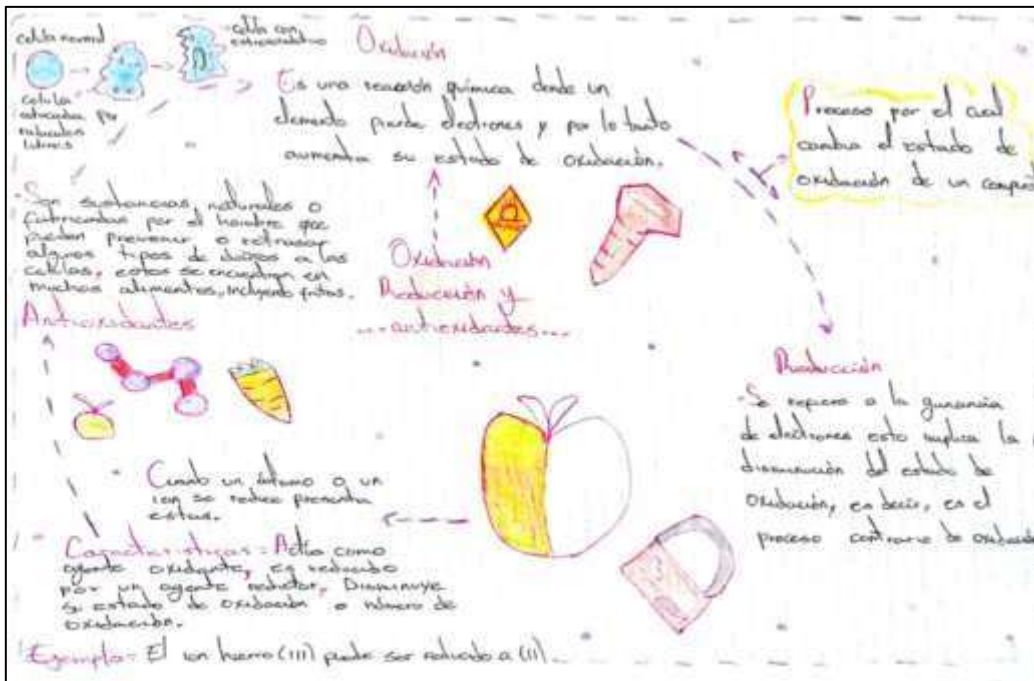 celula normal
celula con
estres oxidativo
celula
atacada por
radicales
libres
Oxidación
Es una reacción química donde un
elemento pierde electrones y por lo tanto
aumenta su estado de oxidación.
Proceso por el cual
cambia el estado de
oxidación de un
Son sustancias naturales o
fabricadas por el hombre que
pueden prevenir o retrasar
algunos tipos de daños a las
celulas, estos se encuentran en
muchos alimentos, incluyendo frutas.
Antioxidantes
Oxidación
Reducción y
...antioxidantes...
Reducción
-Se refiere a la ganancia
de electrones esto implica la
disminución del estado de
oxidación, es decir, es el
proceso contrario de
Cuando un átomo o un
ion se reduce presenta
estas.
Características: Actúa como
agente oxidante, es reducido
por un agente reductor, Disminuye
su estado de oxidación o número de
oxidación.
Ejemplo- El ion hierro (III) puede ser reducido a (II)